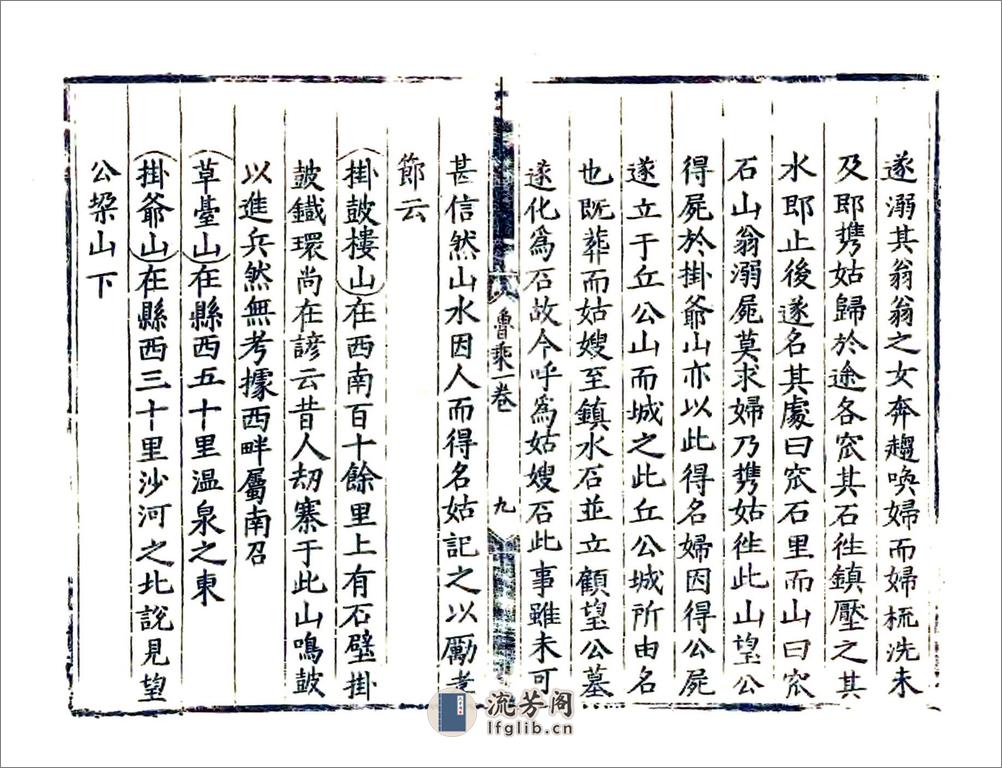 遂溺其翁翁之女奔趨喚婦而婦梳洗未
及即携姑歸於途各㝐其石徃鎮壓之其
水即止後遂名其處曰㝐石里而山曰㝐
石山翁溺屍莫求婦乃携姑徃此山望公
得屍於掛爺山亦以此得名婦因得公屍
遂立于丘公山而城之此丘公城所由名
也既葬而姑嫂至鎮水石並立顧望公墓
遂化為石故今呼為姑嫂石此事雖未可
魯乘一卷
九
甚信然山水因人而得名姑記之以勵孝
節云
掛鼓樓山在西南百十餘里上有石壁掛
鼓鐵環尚在諺云昔人刼寨于此山鳴鼓
以進兵然無考據西畔屬南召
草臺山在縣西五十里温泉之東
掛爺山在縣西三十里沙河之北説見望
公垛山下
流芳阁
lfglib.cn